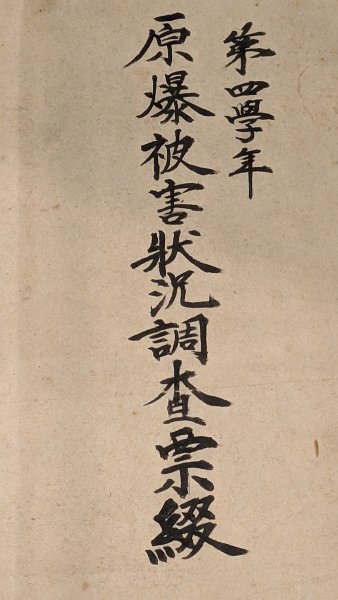 第四學年
原爆被害狀況調査票綴